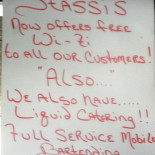 STASSIS
NOW OFFERS FREE
Wi-Zi
to ALL OUR CUSTOMERS!
"ALSO....."
WE ALSO HAVE.....
Liquid CATERING!!
7ull SERVICE Mobile
BARTENDING